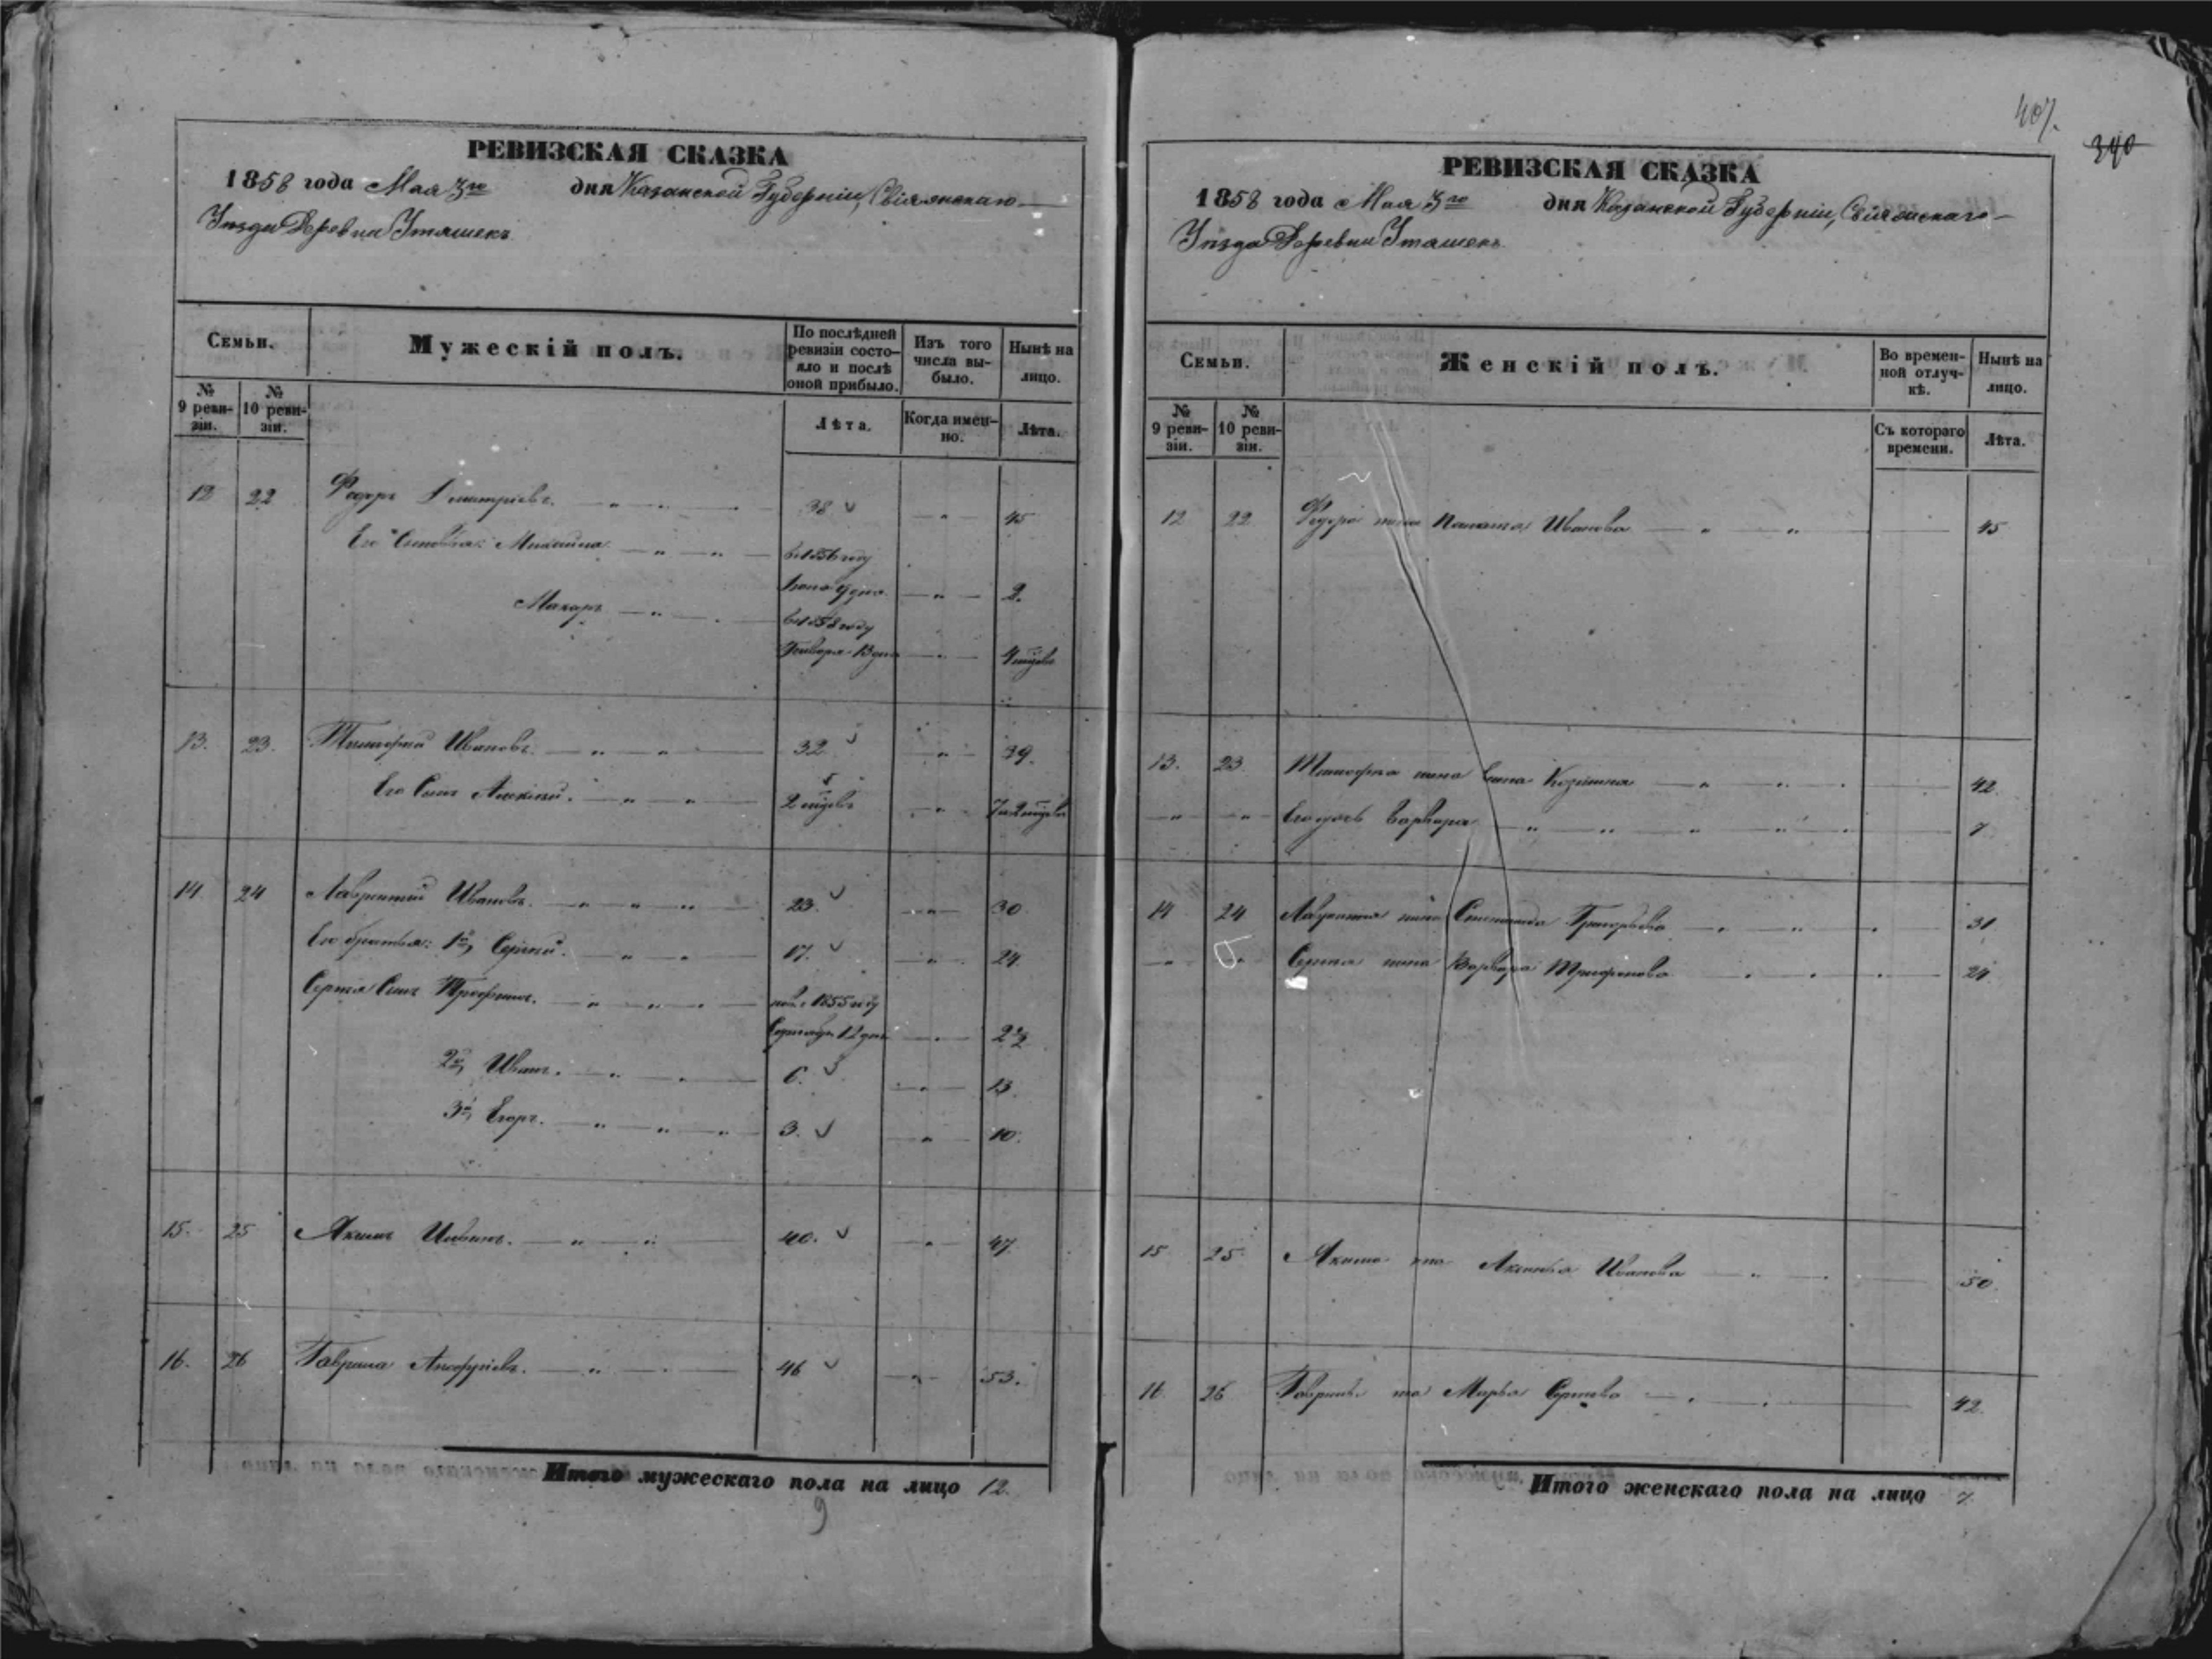 407.
340
РЕВИЗСКАЯ СКАЗКА
1858 года Мая 3го дня Казанской Губерніи, Свіяжскаго
Уѣзда Деревни Уташекъ
Семьи.
Мужескій полъ.
По послѣдней ревизіи состояло и послѣ оной прибыло.
Изъ того числа выбыло.
Нынѣ на лицо.
№ 9 ревизіи.
№ 10 ревизіи.
Лѣта.
Когда именно.
Лѣта.
12 22 Федоръ Дмитріевъ. 38 45
Его Сыновья: Михайла въ 1856 году
2.
Макаръ въ 1858 году
Генваря 13 дня 4 мѣсяца
13. 23. Тимофей Ивановъ. 32 39.
Его Сынъ Алексѣй. 2 мѣсяцъ 7 и 2 мѣсяца
14 24 Лаврентий Ивановъ. 23. 30
Его братья: 1й, Сергѣй. 17. 24
Сергѣя Сынъ Трофимъ. 1855 году
Сентября 12 дня 2 1/2
2й, Иванъ. 6. 13
3й, Егоръ. 3. 10.
15. 25 Акимъ Ивановъ. 40. 47
16. 26 Гаврила 46 53.
Итого мужескаго пола на лицо 12.
9
РЕВИЗСКАЯ СКАЗКА
1858 года Мая 3го дня Казанской Губерніи, Свіяжскаго
Уѣзда Деревни Уташекъ
Семьи.
Женскій полъ.
Во временной отлучкѣ.
Нынѣ на лицо.
№ 9 ревизіи.
№ 10 ревизіи.
Съ котораго времени.
Лѣта.
12 22 Федора жена Иванова 45
13. 23 Тимофея жена Анна Козмина 42
Его дочь Варвара 7
14 24 Лаврентія жена Степанида Григорьева 31
Сергѣя жена Варвара Трифонова 24
15 25 Акима жена Аксинья Иванова 50
16 26 Гаврилы жена Марья Сергѣева 42
Итого женскаго пола на лицо 7